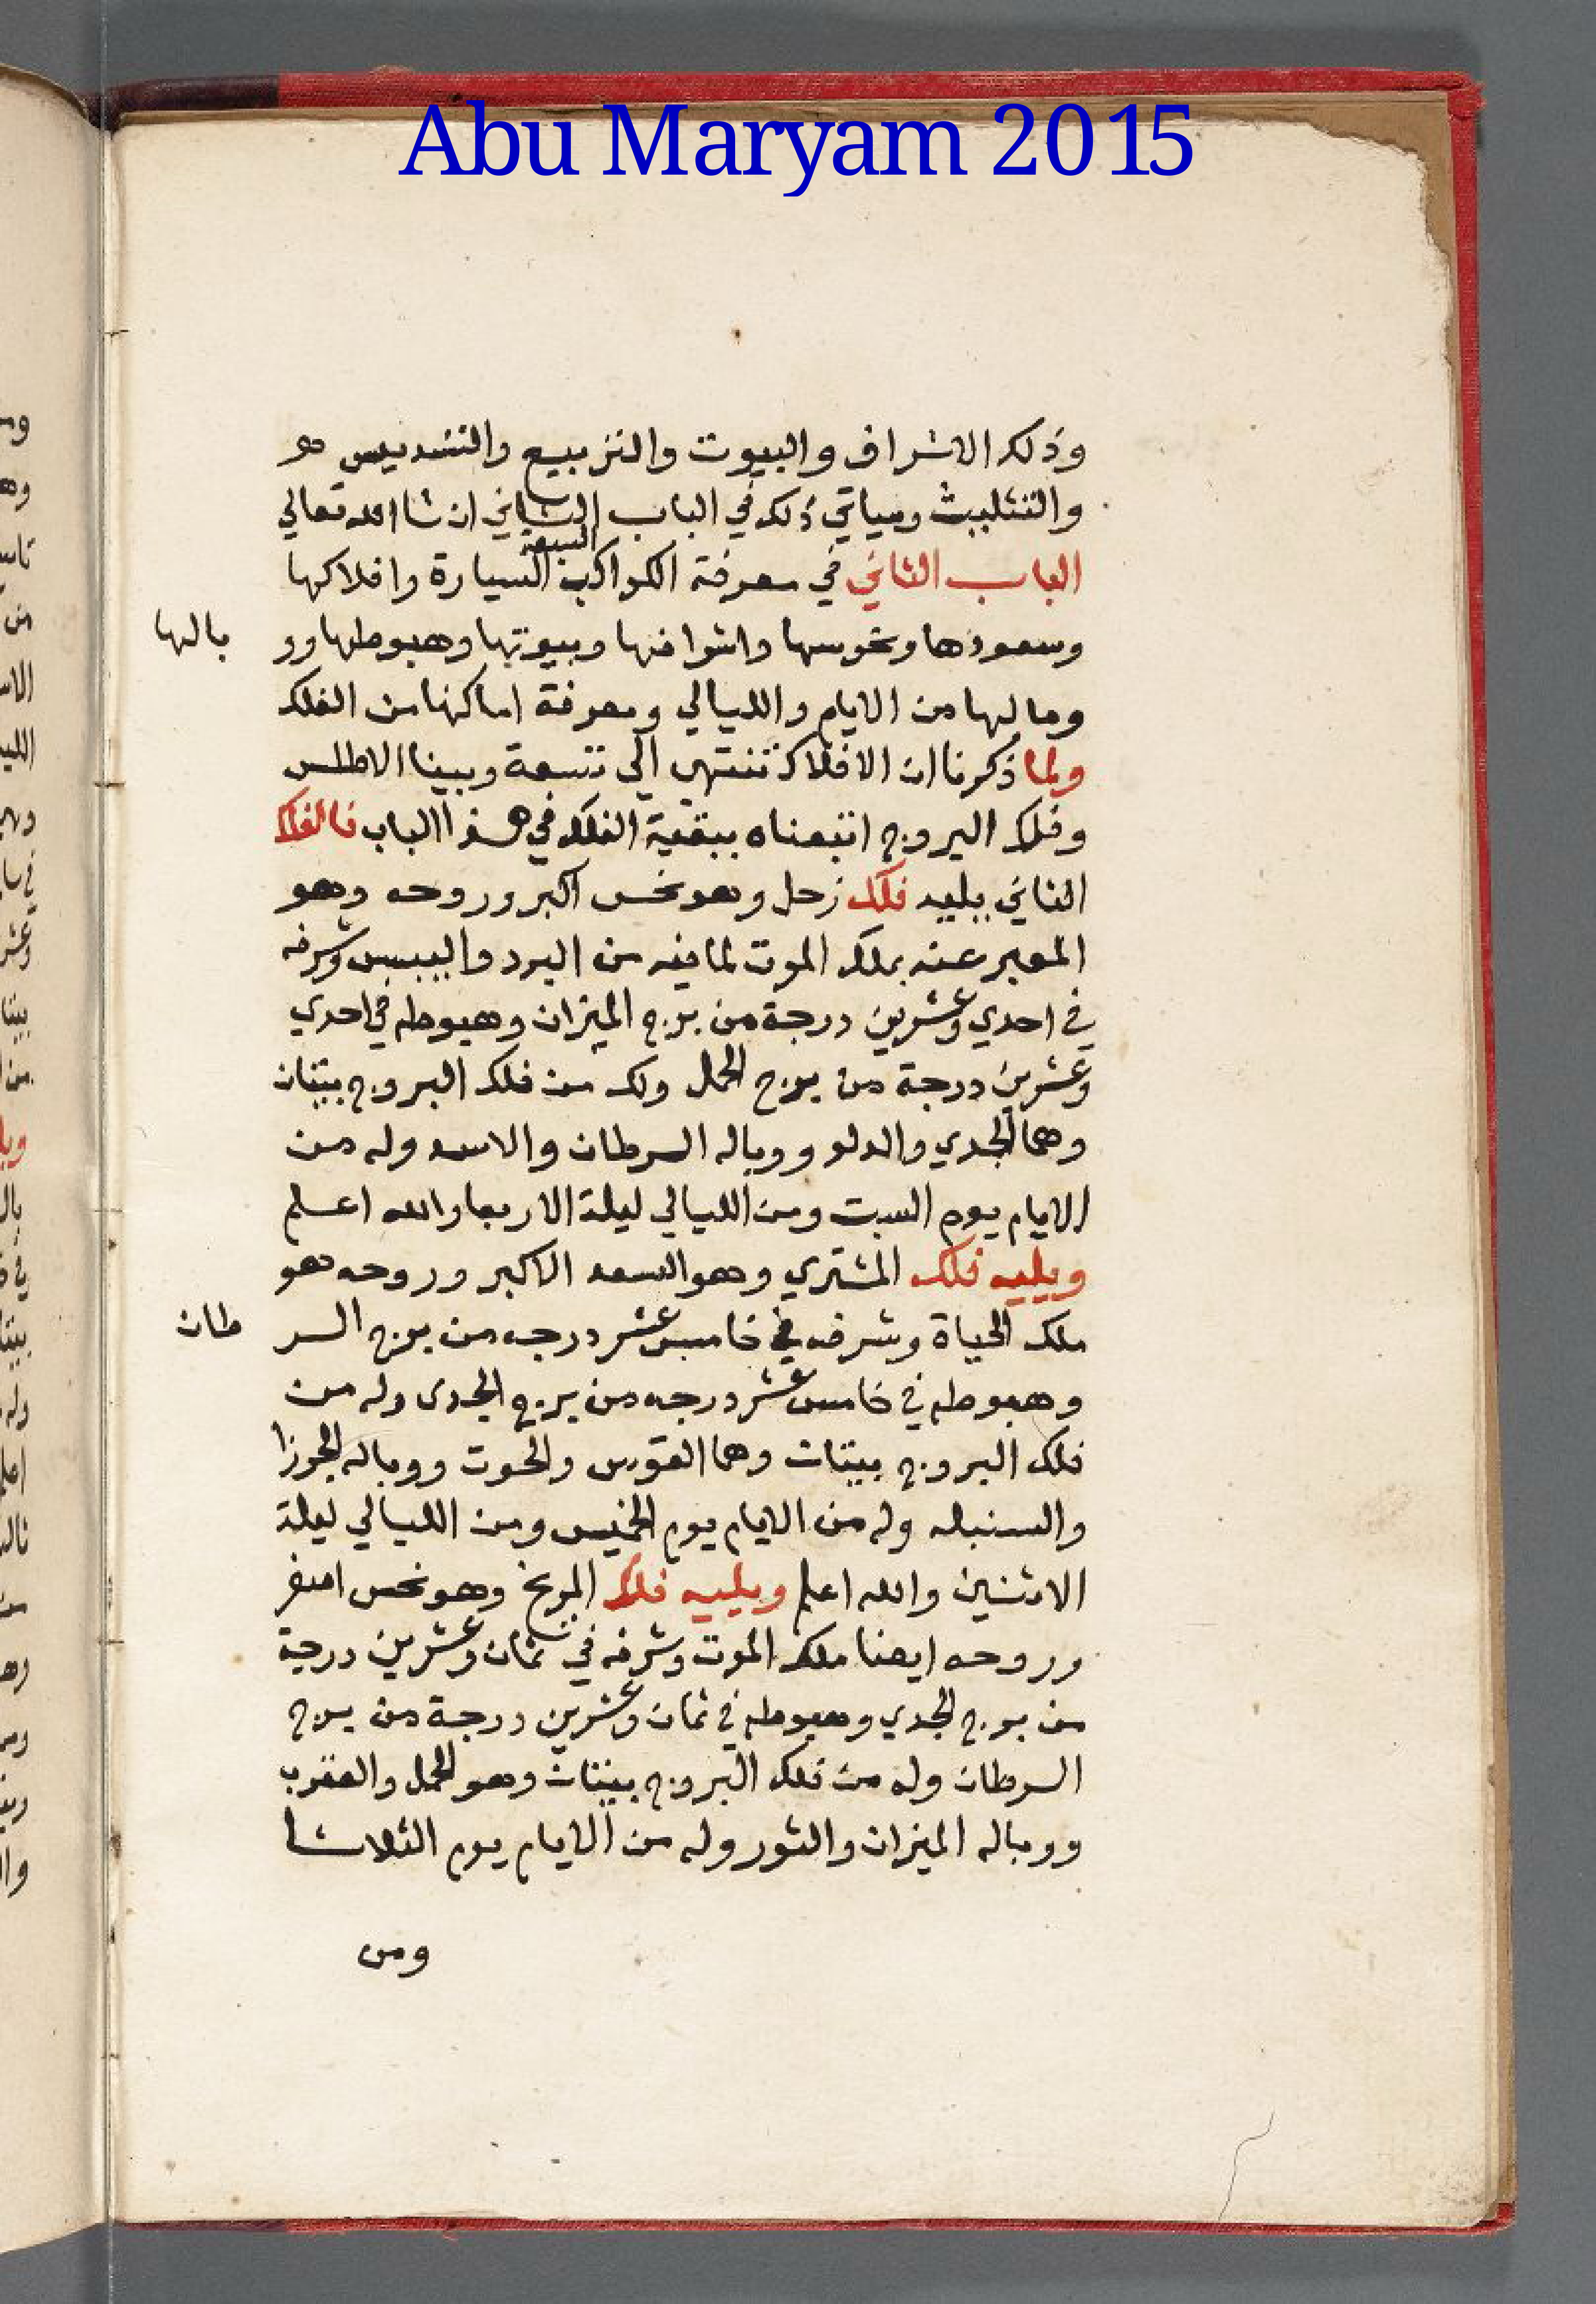 Abu Maryam 2015
وذلك الاشراف والبيوت والتربيع والتسديس
والتثليث وسياتي ذلك في الباب الثاني ان شا الله تعالي
الباب الثاني في معرفة الكواكب السبعة السيارة وافلاكها
وسعودها ونحوسها واشرافها وبيوتها وهبوطها وو بالها
وما لها من الايام والليالي ومعرفة اماكنها من الفلك
ولما ذكرنا ان الافلاك تنتهي الي تسعة وبينا الاطلس
وفلك البروج اتبعناه ببقية الفلك في هذا الباب فالفلك
الثاني يليه فلك زحل وهو نحس اكبر وروحه وهو
المعبر عنه بملك الموت لما فيه من البرد واليبس وشرفه
في احدي وعشرين درجة من برج الميزان وهبوطه في احدي
وعشرين درجة من برج الحمل وله من فلك البروج بيتان
وهما الجدي والدلو ووباله السرطان والاسد وله من
الايام يوم السبت ومن الليالي ليلة الاربعا والله اعلم
ويليه فلك المشتري وهو السعد الاكبر وروحه هو
ملك الحياة وشرفه في خامس عشر درجه من برج السر طان
وهبوطه في خامس عشر درجه من برج الجدى وله من
فلك البروج بيتان وهما القوس والحوت ووباله الجوزا
والسنبله وله من الايام يوم الخميس ومن الليالي ليلة
الاثنين والله اعلم ويليه فلك المريخ وهو نحس اصغر
وروحه ايضا ملك الموت وشرفه في ثمان وعشرين درجة
من برج الجدي وهبوطه في ثمان وعشرين درجة من برج
السرطان وله من فلك البروج بيتان وهو الحمل والعقرب
ووباله الميزان والثور وله من الايام يوم الثلاثا
ومن